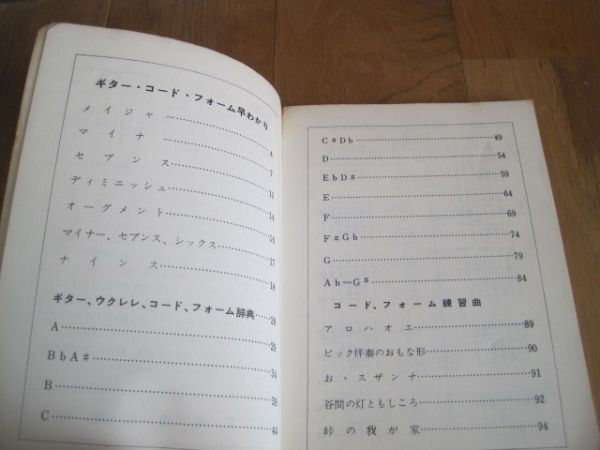 ギター・コード・フォーム早わかり
メイジャー……4
マイナー……7
セブンス……11
ディミニッシュ……14
オーグメント……16
マイナー、セブンス、シックス……17
ナインス……18
ギター、ウクレレ、コード、フォーム辞典……24
A……25
B♭A♯……34
B……39
C……44
C♯D♭……49
D……54
E♭D♯……59
E……64
F……69
F♯G♭……74
G……79
A♭＝G♯……84
コード、フォーム練習曲
アロハオエ……89
ピック伴奏のおもな形……90
お、スザンナ……91
谷間の灯ともしころ……92
峠の我が家……94